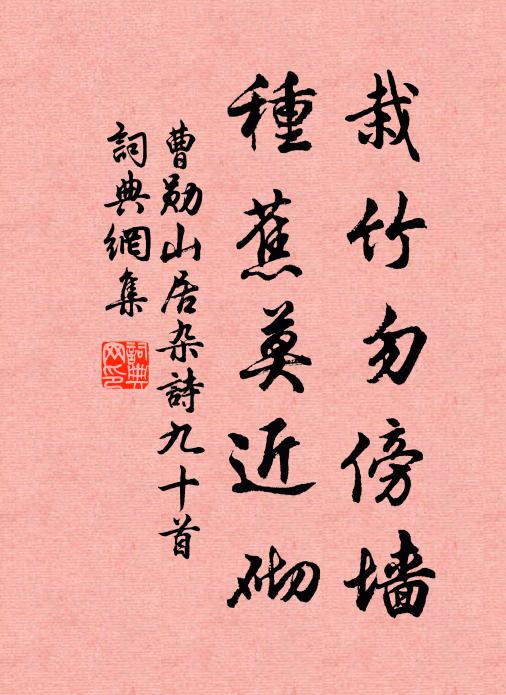 栽竹勿傍墙
種蕉莫近砌
曹勛山居杂詩九十首
詞典網集
詞典網印